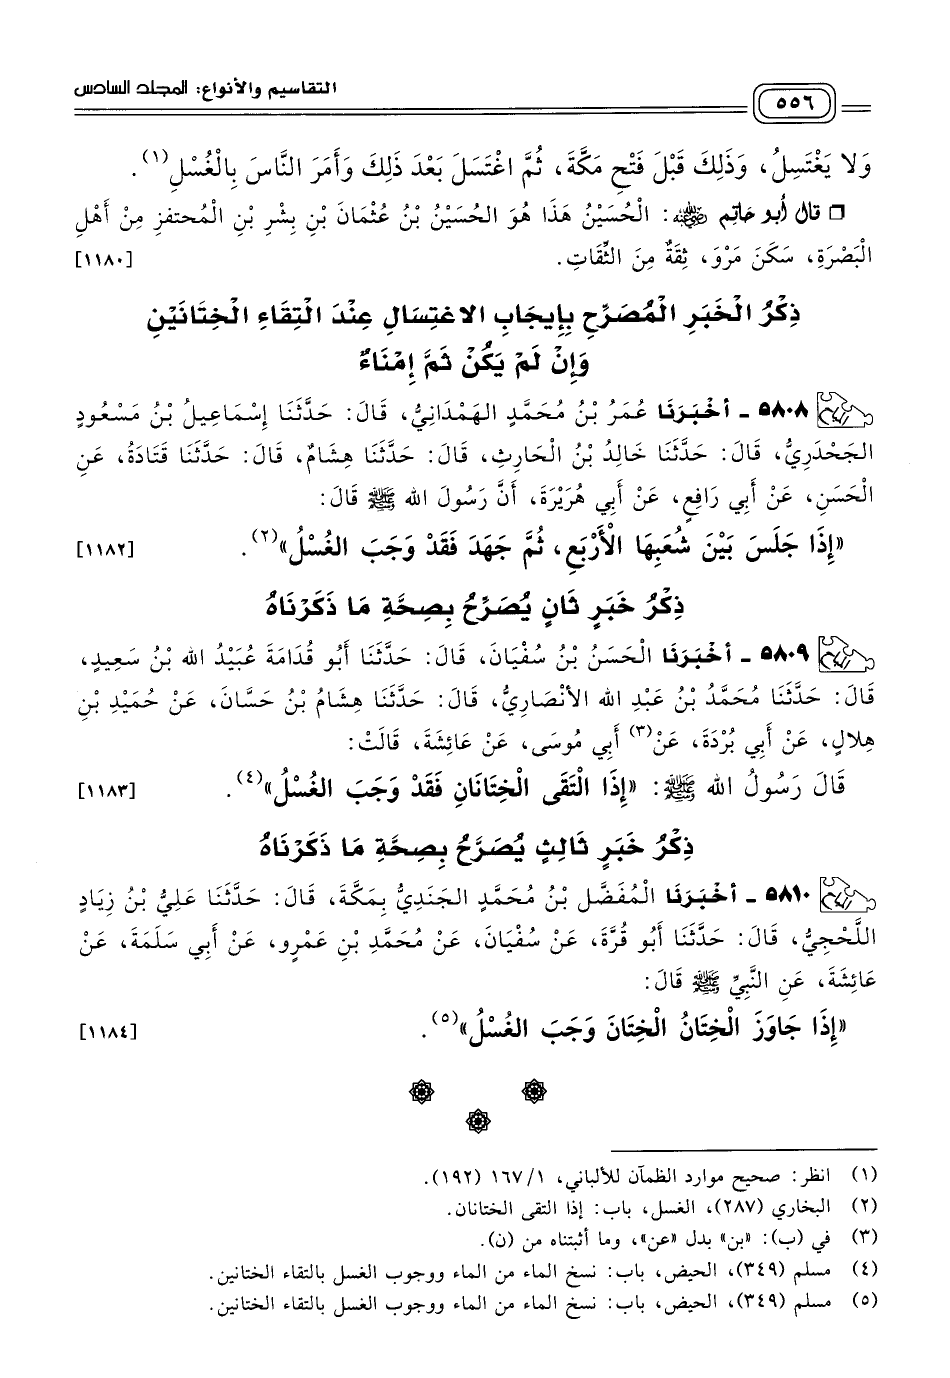 ٥٥٦
التقاسيم والأنواع: المجلد السادس
وَلا يَغْتَسِلُ، وَذَلِكَ قَبْلَ فَتْحِ مَكَّةَ، ثُمَّ اغْتَسَلَ بَعْدَ ذَلِكَ وَأَمَرَ النَّاسَ بِالْغُسْلِ(١).
□ قال أبو حاتم ﵁: الْحُسَيْنُ هَذَا هُوَ الحُسَيْنُ بْنُ عُثْمَانَ بْنِ بِشْرِ بْنِ الْمُحتفزِ مِنْ أَهْلِ
الْبَصْرَةِ، سَكَنَ مَرْوَ، ثِقَةٌ مِنَ الثِّقَاتِ. [١١٨٠]
ذِكْرُ الْخَبَرِ الْمُصَرِّحِ بِإِيجَابِ الاغْتِسَالِ عِنْدَ الْتِقَاءِ الْخِتَانَيْنِ
وَإِنْ لَمْ يَكُنْ ثَمَّ إِمْنَاءٌ
٥٨٠٨ - أَخْبَرَنَا عُمَرُ بْنُ مُحَمَّدٍ الهَمْدَانِيُّ، قَالَ: حَدَّثَنَا إِسْمَاعِيلُ بْنُ مَسْعُودٍ
الجَحْدَرِيُّ، قَالَ: حَدَّثَنَا خَالِدُ بْنُ الْحَارِثِ، قَالَ: حَدَّثَنَا هِشَامٌ، قَالَ: حَدَّثَنَا قَتَادَةُ، عَنِ
الْحَسَنِ، عَنْ أَبِي رَافِعٍ، عَنْ أَبِي هُرَيْرَةَ، أَنَّ رَسُولَ الله ﷺ قَالَ:
«إِذَا جَلَسَ بَيْنَ شُعَبِهَا الْأَرْبَعِ، ثُمَّ جَهَدَ فَقَدْ وَجَبَ الغُسْلُ»(٢). [١١٨٢]
ذِكْرُ خَبَرٍ ثَانٍ يُصَرِّحُ بِصِحَّةِ مَا ذَكَرْنَاهُ
٥٨٠٩ - أَخْبَرَنَا الْحَسَنُ بْنُ سُفْيَانَ، قَالَ: حَدَّثَنَا أَبُو قُدَامَةَ عُبَيْدُ الله بْنُ سَعِيدٍ،
قَالَ: حَدَّثَنَا مُحَمَّدُ بْنُ عَبْدِ الله الأَنْصَارِيُّ، قَالَ: حَدَّثَنَا هِشَامُ بْنُ حَسَّانَ، عَنْ حُمَيْدِ بْنِ
هِلالٍ، عَنْ أَبِي بُرْدَةَ، عَنْ(٣) أَبِي مُوسَى، عَنْ عَائِشَةَ، قَالَتْ:
قَالَ رَسُولُ الله ﷺ: «إِذَا الْتَقَى الْخِتَانَانِ فَقَدْ وَجَبَ الغُسْلُ»(٤). [١١٨٣]
ذِكْرُ خَبَرٍ ثَالِثٍ يُصَرِّحُ بِصِحَّةِ مَا ذَكَرْنَاهُ
٥٨١٠ - أَخْبَرَنَا الْمُفَضَّل بْنُ مُحَمَّدٍ الجَنَدِيُّ بِمَكَّةَ، قَالَ: حَدَّثَنَا عَلِيُّ بْنُ زِيَادٍ
اللَّحْجِيُّ، قَالَ: حَدَّثَنَا أَبُو قُرَّةَ، عَنْ سُفْيَانَ، عَنْ مُحَمَّدِ بْنِ عَمْرٍو، عَنْ أَبِي سَلَمَةَ، عَنْ
عَائِشَةَ، عَنِ النَّبِيِّ ﷺ قَالَ:
«إِذَا جَاوَزَ الْخِتَانُ الْخِتَانَ وَجَبَ الغُسْلُ»(٥). [١١٨٤]
(١) انظر: صحيح موارد الظمآن للألباني، ١/ ١٦٧ (١٩٢).
(٢) البخاري (٢٨٧)، الغسل، باب: إذا التقى الختانان.
(٣) في (ب): «بن» بدل «عن»، وما أثبتناه من (ن).
(٤) مسلم (٣٤٩)، الحيض، باب: نسخ الماء من الماء ووجوب الغسل بالتقاء الختانين.
(٥) مسلم (٣٤٩)، الحيض، باب: نسخ الماء من الماء ووجوب الغسل بالتقاء الختانين.